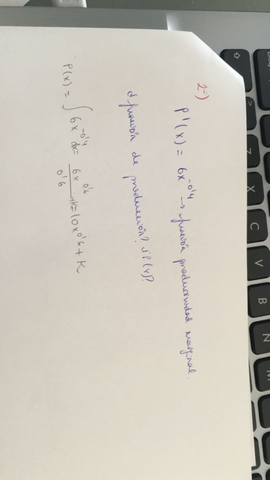 2-)
P'(x) = 6x^-0'4 → función productividad marginal.
¿función de producción? ¿P(x)?
P(x) = ∫ 6x^-0'4 dx = 6x^0'6 / 0'6 + K = 10x^0'6 + K
Z
X
C
V
B
N